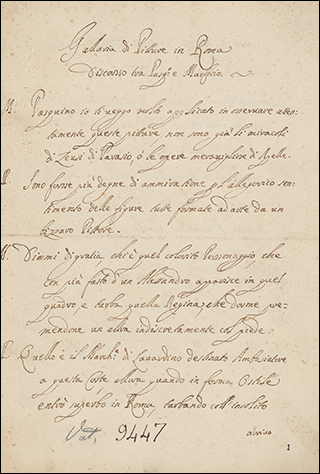 Gallaria di Pitture in Roma
Discorso tra Pasq:o e Marforio.
M. Pasquino io ti veggo molto applicato in osservare atten-
tamente queste pitture non sono già li miracoli
di Zeusi di Parasio, ò le opere meravigliose di Apelle.
P. Sono forse più degne di ammiratione p l'allegorico sen-
timento delle figure tutte formate ad arte da un
bizzaro Pittore.
M. Dimmi di gratia chi è quel colorito Personaggio, che
con più fasto d'un Alessandro apparisce in quel
quadro, e turba quella Regina, che dorme pre-
mendone un altra indiscretamente col piede.
P. Quello è il March: di Lavardino destinato Ambasciatore
a questa Corte allora quando in forma Ostile
entrò superbo in Roma, turbando coll'insolito
Vat. 9447
1